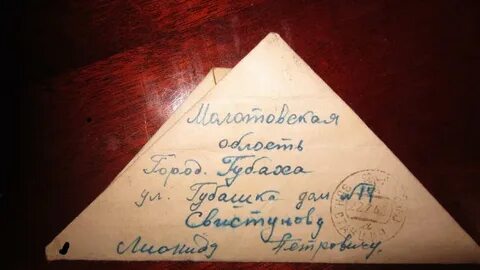 Молотовская
область
Город. Губаха
ул. Губашка дом №14
Свистунову
Лиониду Петровичу.